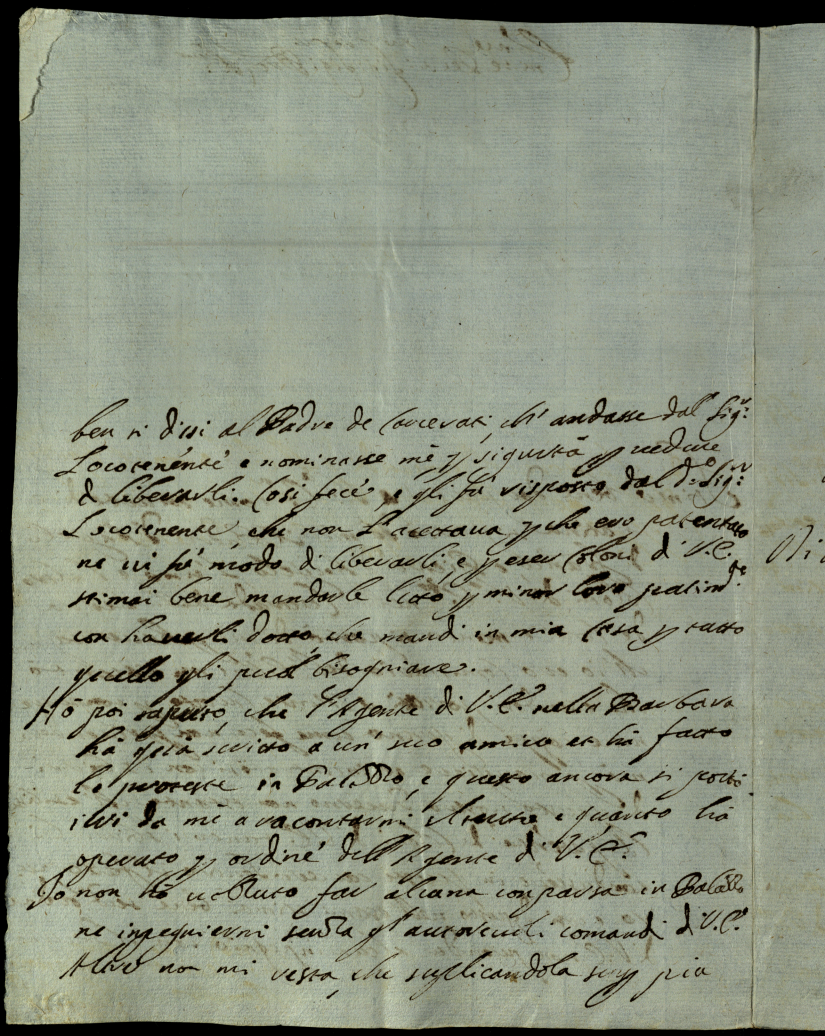 ben si dissi al Padre de Carcerati, ch' andasse dal Sig.r
Locotenente e nominasse mè p sigurtà p uedere
di liberarli. Cosi fece, e gli fù risposto dal d.o Sig.r
Locotenente che non l'acettaua p che ero patentato
ne ui fù modo di liberarli, e p esser Coloni di V.E.
stimai bene mandarle p minor loro
con hauerli detto, che mandi in mia Casa p tutto
quello gli puol bisogniare.
Hò poi saputo, che l'Agente di V.E. nella Barbara
hà già scritto a un' suo amico et hà fatto
le proteste in Palazzo, e questo ancora si portò
ieri da mè a racontarmi il tutto e quanto hà
operato p ordine dell'Agente di V.E.
Io non hò uolluto far alcuna comparsa in Palazzo
ne inpegniermi senza gl'autoreuoli comandi di V.E.
Altro non mi resta, che suplicandola sempre più
Di